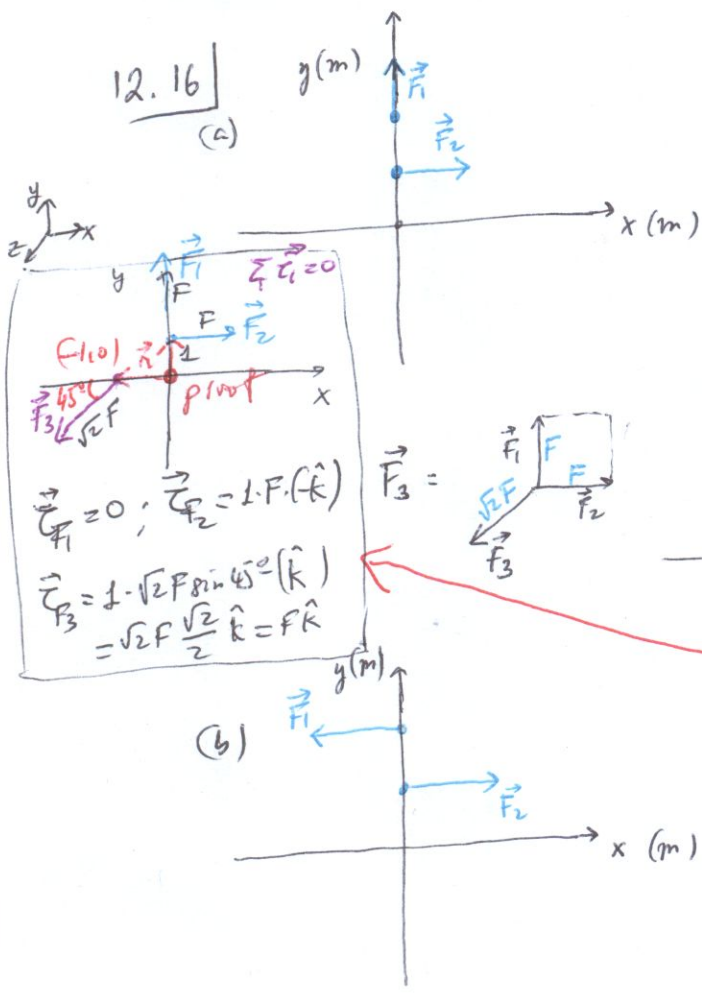 12.16
(a)
y(m)
F⃗₁
F⃗₂
x (m)
y
x
z
y
F⃗₁
Σ τ⃗ᵢ = 0
F
F
F⃗₂
(-1,0)
r⃗
1
45°
pivot
x
F⃗₃
√2F
τ⃗_F₁ = 0 ; τ⃗_F₂ = 1·F·(-k̂)
τ⃗_F₃ = 1·√2F sin 45° (k̂)
= √2F √2/2 k̂ = F k̂
F⃗₃ =
F⃗₁
F
F
√2F
F⃗₂
F⃗₃
y(m)
(b)
F⃗₁
F⃗₂
x (m)